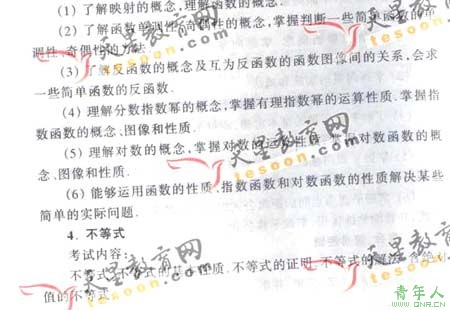 (1) 了解映射的概念,理解函数的概念.
(2) 了解函数单调性、奇偶性的概念,掌握判断一些简单函数的单
调性、奇偶性的方法.
(3) 了解反函数的概念及互为反函数的函数图像间的关系,会求
一些简单函数的反函数.
(4) 理解分数指数幂的概念,掌握有理指数幂的运算性质.掌握指
数函数的概念、图像和性质.
(5) 理解对数的概念,掌握对数的运算性质.掌握对数函数的概
念、图像和性质.
(6) 能够运用函数的性质、指数函数和对数函数的性质解决某些
简单的实际问题.
4. 不等式
考试内容:
不等式.不等式的基本性质.不等式的证明.不等式的解法.含绝对
值的不等式.
天星教育网
tesoon.com
天星教育网
tesoon.com
天星教育网
tesoon.com
天星教育网
tesoon.com
青年人
www.QNR.CN